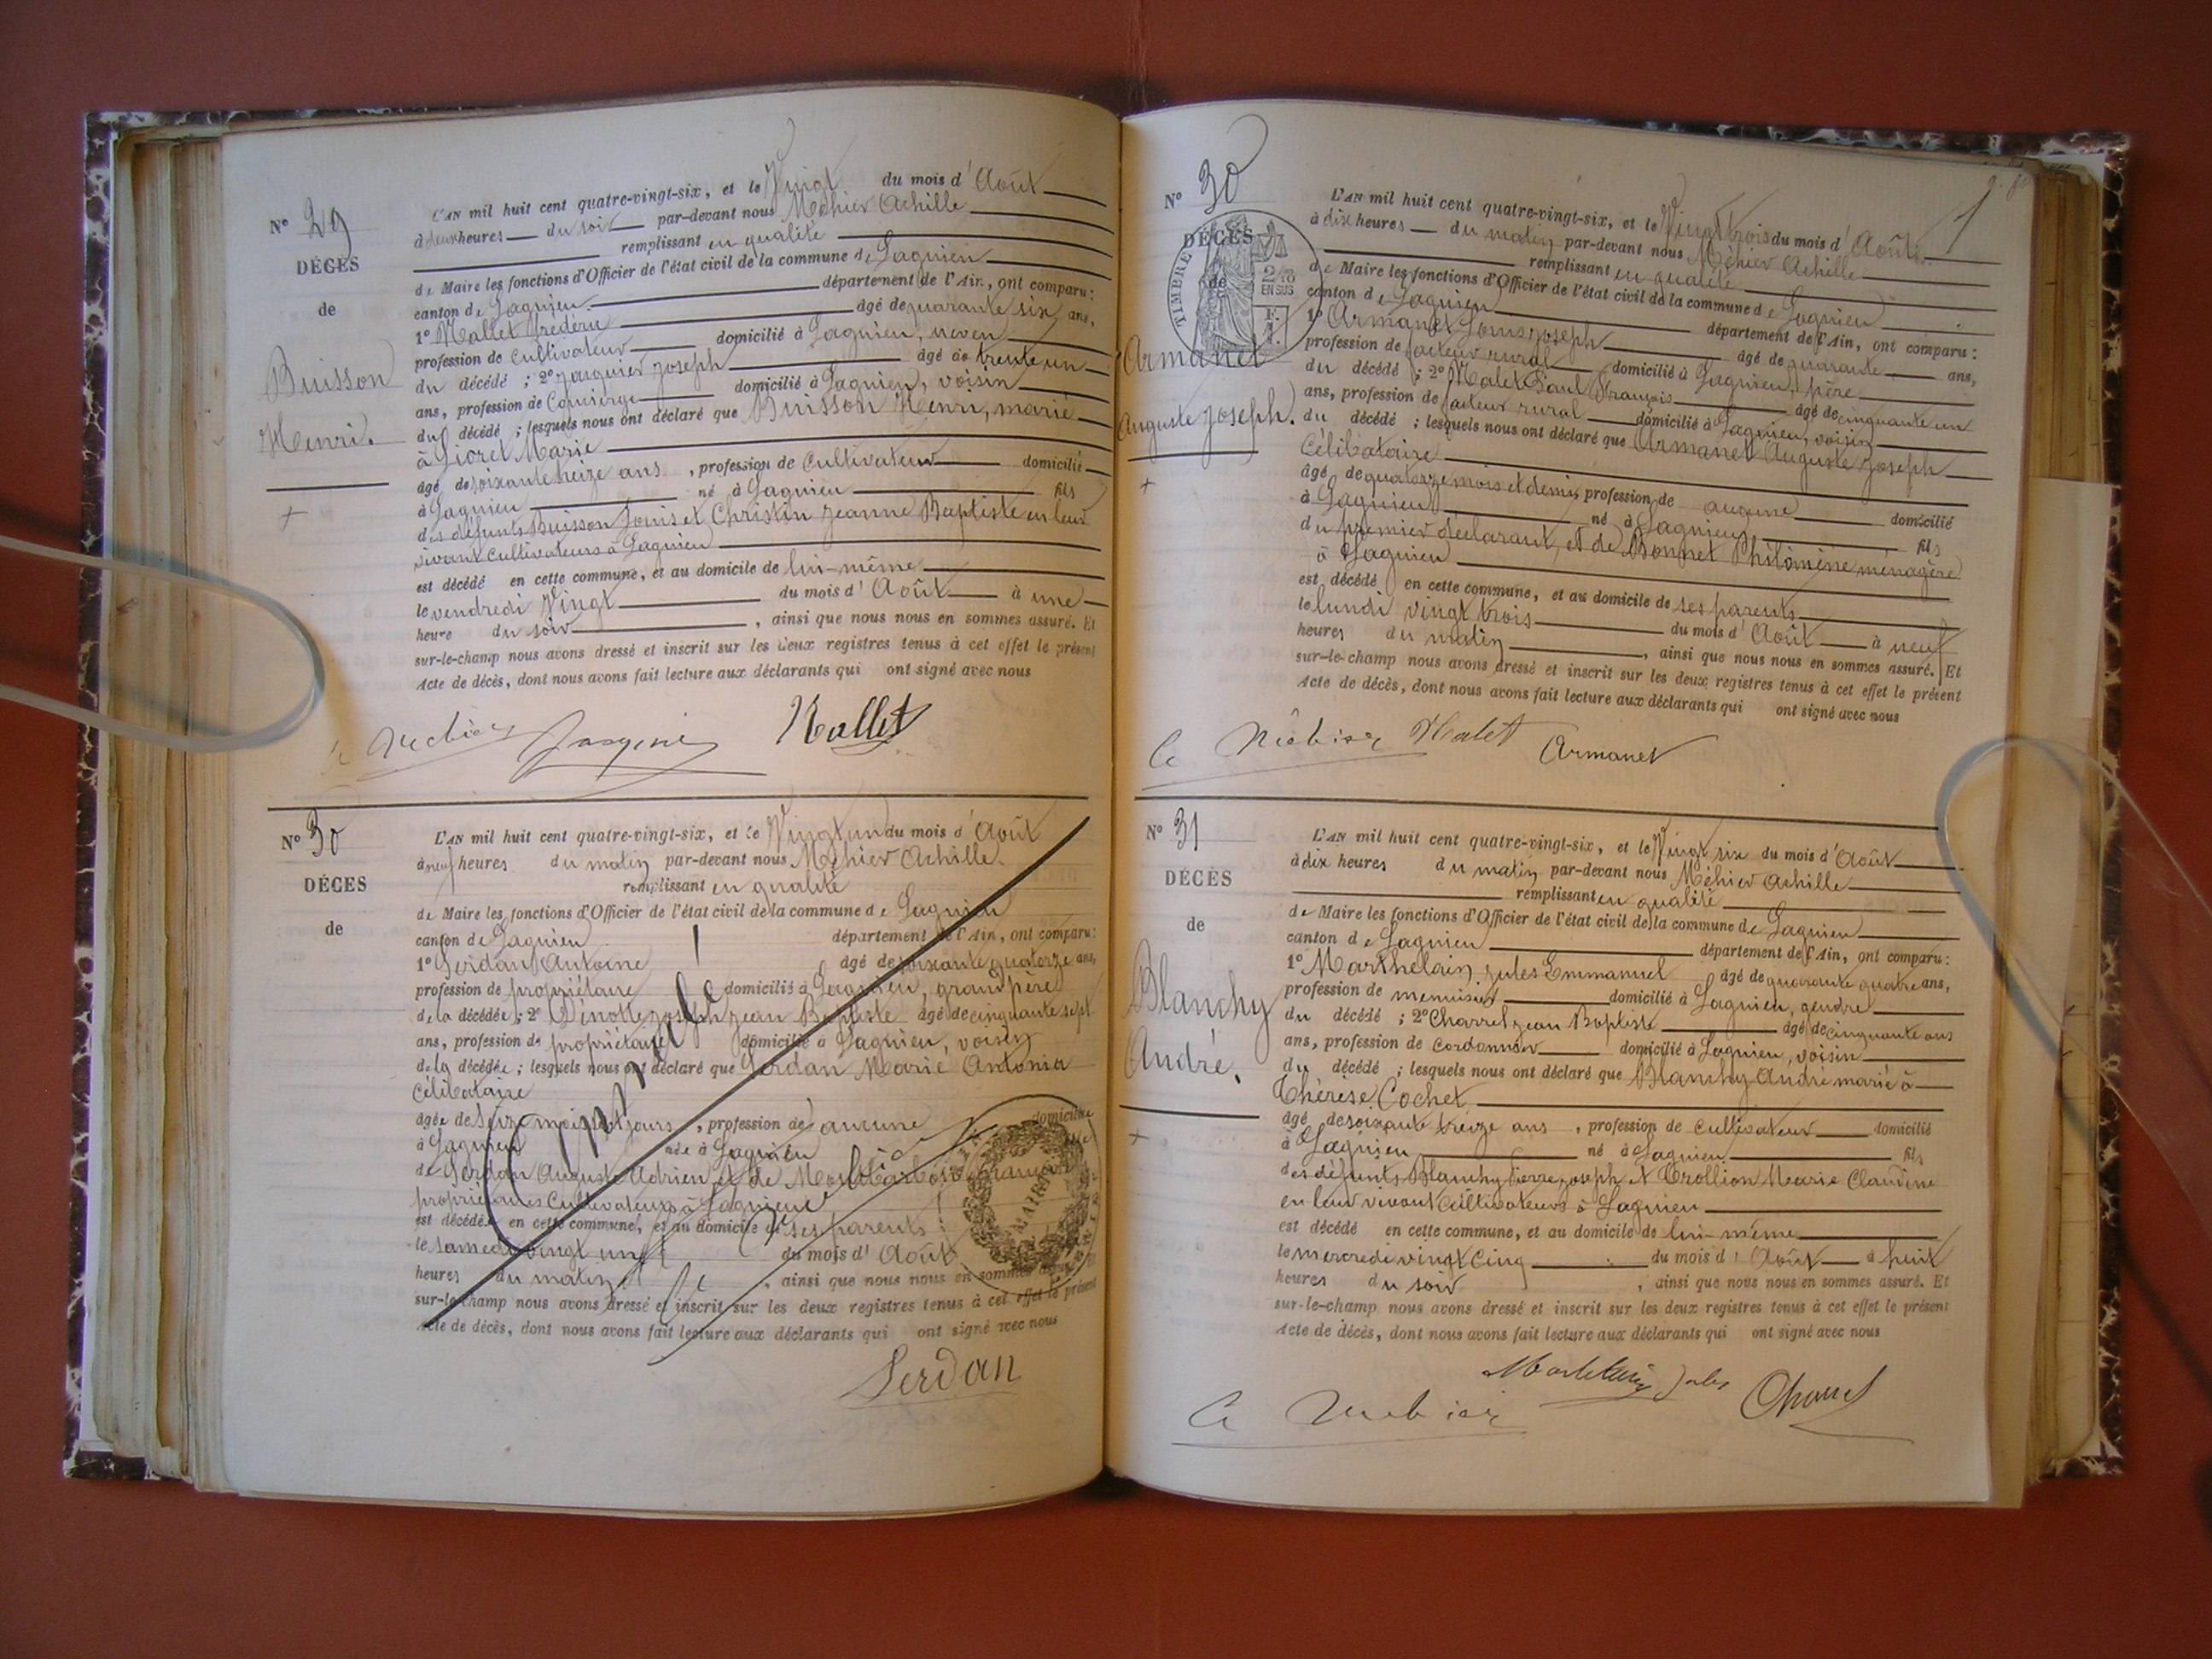 N° 29
DÉCES
de
Buisson
Henri.
L'AN mil huit cent quatre-vingt-six, et le Vingt du mois d'Août
à deux heures du soir par-devant nous Méhier Achille
remplissant en qualité
de Maire les fonctions d'Officier de l'état civil de la commune de Lagnieu
canton de Lagnieu département de l'Ain, ont comparu:
1° Mallet frédéric âgé de quarante six ans,
profession de cultivateur domicilié à Lagnieu, neveu
du décédé; 2° Jacquier Joseph âgé de trente un
ans, profession de Concierge domicilié à Lagnieu, voisin
du décédé; lesquels nous ont déclaré que Buisson Henri, marié
à Marie
âgé de soixante treize ans, profession de Cultivateur domicilié
à Lagnieu né à Lagnieu fils
des défunts Buisson Louis et Christin Jeanne Baptiste en leur
vivant cultivateurs à Lagnieu
est décédé en cette commune, et au domicile de lui-même
le vendredi Vingt du mois d'Août à une
heure du soir, ainsi que nous nous en sommes assuré. Et
sur-le-champ nous avons dressé et inscrit sur les deux registres tenus à cet effet le présent
Acte de décès, dont nous avons fait lecture aux déclarants qui ont signé avec nous
Méhier Jacquier Mallet
N° 30
DÉCES
de
L'AN mil huit cent quatre-vingt-six, et le Vingt un du mois d'Août
à neuf heures du matin par-devant nous Méhier Achille.
remplissant en qualité
de Maire les fonctions d'Officier de l'état civil de la commune de Lagnieu
canton de Lagnieu département de l'Ain, ont comparu:
1° Serdan Antoine âgé de soixante quatorze ans,
profession de propriétaire domicilié à Lagnieu, grand père
de la décédée; 2° Joseph Jean Baptiste âgé de cinquante sept
ans, profession de propriétaire domicilié à Lagnieu, voisin
de la décédée; lesquels nous ont déclaré que Serdan Marie Antonia
Célibataire
âgée de seize mois jours, profession de aucune domiciliée
à Lagnieu née à Lagnieu
de Serdan Auguste Adrien et de
propriétaires Cultivateurs à Lagnieu
est décédée en cette commune, et au domicile de ses parents
le samedi vingt un du mois d'Août
heures du matin, ainsi que nous nous en sommes assuré. Et
sur-le-champ nous avons dressé et inscrit sur les deux registres tenus à cet effet le présent
Acte de décès, dont nous avons fait lecture aux déclarants qui ont signé avec nous
Serdan
MAIRIE
N° 30
DÉCES
de
TIMBRE
2/10
EN SUS
Armanet
Auguste Joseph.
L'AN mil huit cent quatre-vingt-six, et le Vingt trois du mois d'Août
à dix heures du matin par-devant nous Méhier Achille
remplissant en qualité
de Maire les fonctions d'Officier de l'état civil de la commune de Lagnieu
canton de Lagnieu département de l'Ain, ont comparu:
1° Armanet Louis Joseph âgé de quarante ans,
profession de facteur rural domicilié à Lagnieu, père
du décédé; 2° Malet Paul François âgé de cinquante un
ans, profession de facteur rural domicilié à Lagnieu, voisin
du décédé; lesquels nous ont déclaré que Armanet Auguste Joseph
Célibataire
âgé de quatorze mois et demi, profession de aucune domicilié
à Lagnieu né à Lagnieu fils
du premier déclarant, et de Bonnet Philomène ménagère
à Lagnieu
est décédé en cette commune, et au domicile de ses parents
le lundi vingt trois du mois d'Août à neuf
heures du matin, ainsi que nous nous en sommes assuré. Et
sur-le-champ nous avons dressé et inscrit sur les deux registres tenus à cet effet le présent
Acte de décès, dont nous avons fait lecture aux déclarants qui ont signé avec nous
Méhier Malet Armanet
N° 31
DÉCÈS
de
Blanchy
André.
L'AN mil huit cent quatre-vingt-six, et le Vingt six du mois d'Août
à dix heures du matin par-devant nous Méhier Achille
remplissant en qualité
de Maire les fonctions d'Officier de l'état civil de la commune de Lagnieu
canton de Lagnieu département de l'Ain, ont comparu:
1° Marthelain Jules Emmanuel âgé de quarante quatre ans,
profession de menuisier domicilié à Lagnieu, gendre
du décédé; 2° Charrel Jean Baptiste âgé de cinquante ans
ans, profession de Cordonnier domicilié à Lagnieu, voisin
du décédé; lesquels nous ont déclaré que Blanchy André marié à
Thérèse Cochet
âgé de soixante treize ans, profession de cultivateur domicilié
à Lagnieu né à Lagnieu fils
des défunts Blanchy Pierre Joseph et Trollion Marie Claudine
en leur vivant cultivateurs à Lagnieu
est décédé en cette commune, et au domicile de lui-même
le mercredi vingt Cinq du mois d'Août à huit
heures du soir, ainsi que nous nous en sommes assuré. Et
sur-le-champ nous avons dressé et inscrit sur les deux registres tenus à cet effet le présent
Acte de décès, dont nous avons fait lecture aux déclarants qui ont signé avec nous
Marthelain Jules Charrel
Méhier